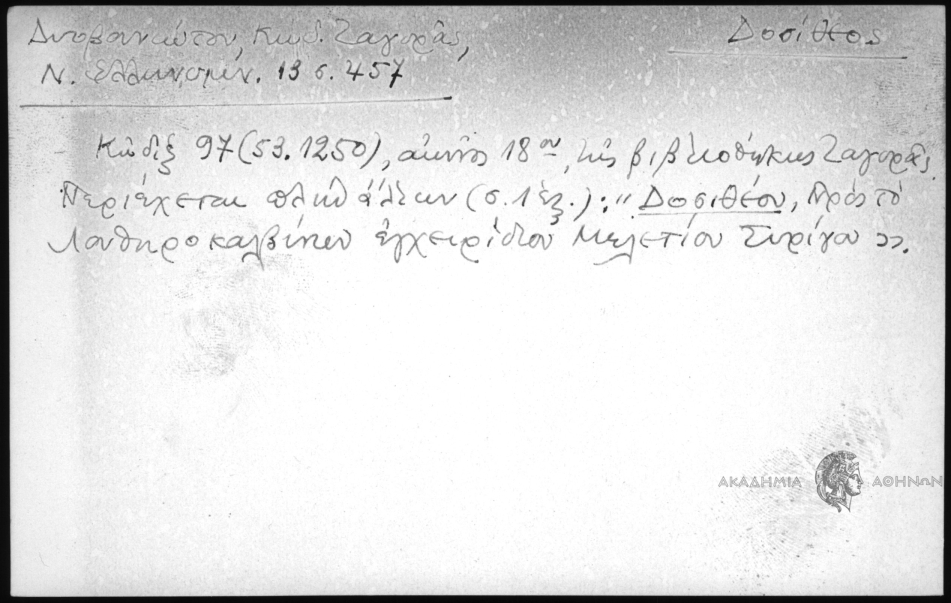 Δυοβουνιώτου, Κώδ. Ζαγορᾶς, Δοσίθεος
Ν. Ἑλληνομν. 13 σ. 457
Κῶδιξ 97 (53.1250), αἰῶνος 18ου, τῆς βιβλιοθήκης Ζαγορᾶς.
Περιέχεται πλὴν ἄλλων (σ. 1 ἑξ.): "Δοσιθέου, Πρὸς τὸ
Λουθηροκαλβίνων ἐγχειρίδιον Μελετίου Συρίγου».
ΑΚΑΔΗΜΙΑ ΑΘΗΝΩΝ